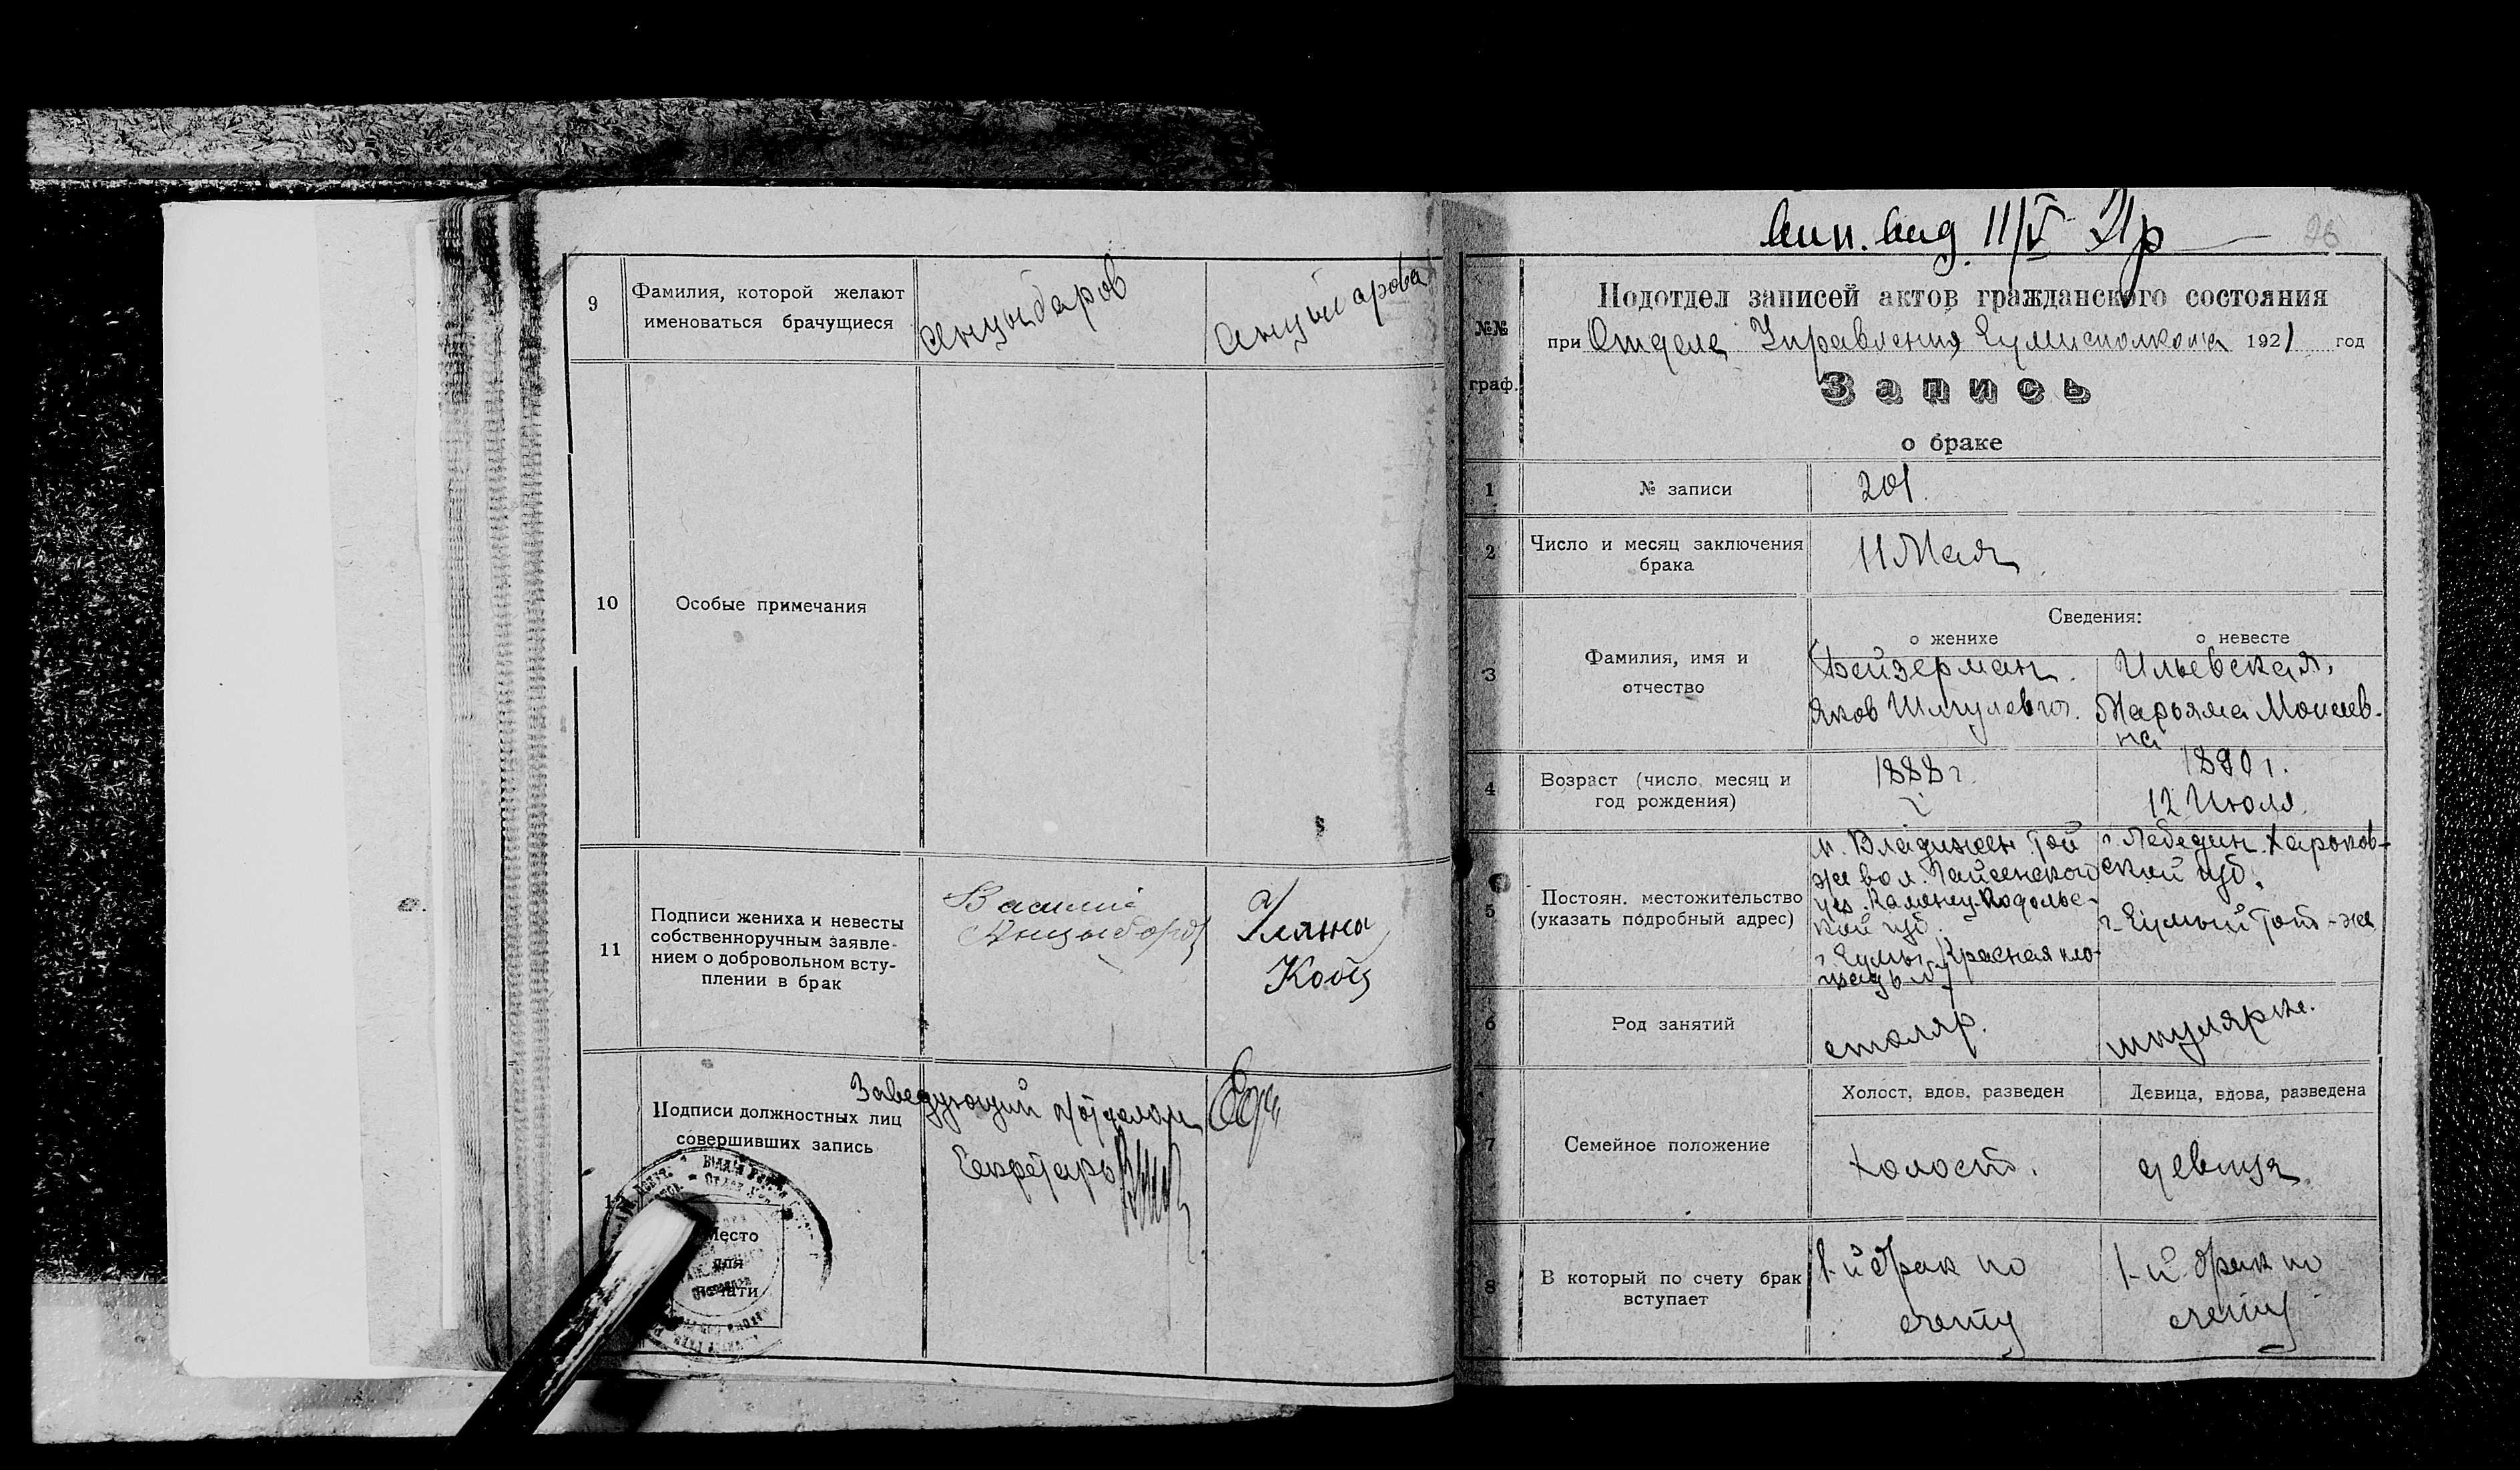 9
Фамилия, которой желают
именоваться брачущиеся
Анцыбаров
10
Особые примечания
11
Подписи жениха и невесты
собственноручным заявле-
нием о добровольном всту-
плении в брак
Василий
Уляна
Подписи должностных лиц
совершивших запись
Заведующий п/отделом
Секретарь
Место
для
печати
11/V 21 р
26
№№
граф.
Подотдел записей актов гражданского состояния
при Отделе Управления Сумисполкома 1921 год
Запись
о браке
1
№ записи
201.
2
Число и месяц заключения
брака
11 Мая
Сведения:
о женихе
о невесте
3
Фамилия, имя и
отчество
Фейзерман.
Яков Шмулевич.
Ильевская,
Марьяма Моисеев-
на
4
Возраст (число, месяц и
год рождения)
1888 г.
1890 г.
12 Июля.
5
Постоян. местожительство
(указать подробный адрес)
м. Владижен той
же вол. Гайсенской
уез. Каменец-Подольс-
кой губ.
г. Сумы, Красная пло-
щадь №
г. Лебедин. Харьков-
ской губ.
г. Сумы тот-же
6
Род занятий
столяр.
7
Семейное положение
Холост, вдов, разведен
Девица, вдова, разведена
холост.
девица.
8
В который по счету брак
вступает
1-й брак по
счету
1-й брак по
счету